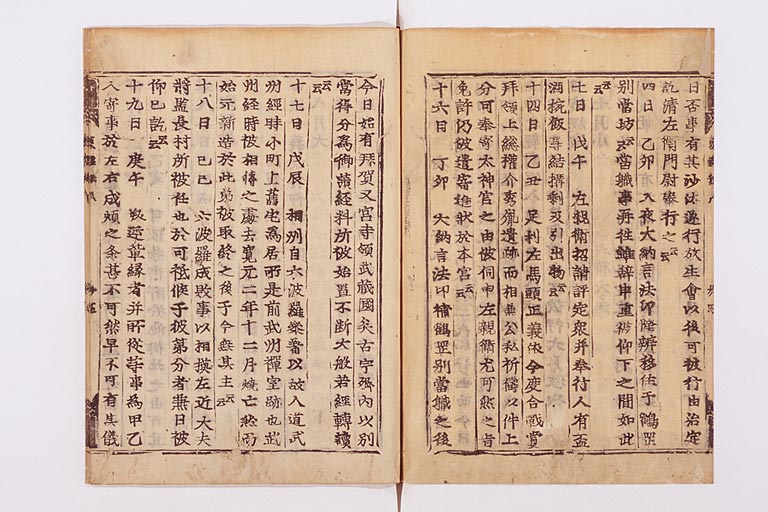 日否事有其沙汰遂行放生會以後可被行由治定
訖清左衛門尉奉行之云云
四日 乙卯 入夜大納言法印隆辨移住于鶴岡
別當坊云云當職事再往雖辞申重被仰下之間如此
云云
七日 戊午 左親衛招請評定衆并奉行人有盃
酒椀飯等結搆剰及引出物云云
十四日 乙丑 今足利左馬頭正義依今度合戰賞
拜領上総權介秀胤遺跡而相兼公私祈祷以件上
分可奉寄太神宮之由被伺申左親衛尤可然之旨
免許仍被遣寄進狀於本宮云云
十六日 丁卯 大納言法印補鶴岡別當職之後
今日始有拜賀又宮寺領武蔵國矣古宇郷内以別
當得分為御贖經料所被始置不断大般若經轉讀
云云
十七日 戊辰 相州自六波羅參着以故入道武
州經時小町上舊宅為居所是前武州禪室跡也武
州經時被相傳之處去寛元二年十二月燒亡然而
始元新造於此第被取終之後于今無其主云云
十八日 己巳 六波羅成敗事以相摸左近大夫
將監長村所被補也於可祗候于彼第分者兼日被
仰已訖云云
十九日 庚午 叛逆輩縁者并所從等事為甲乙
人寄事於左右成煩之条甚不可然早不可有其儀